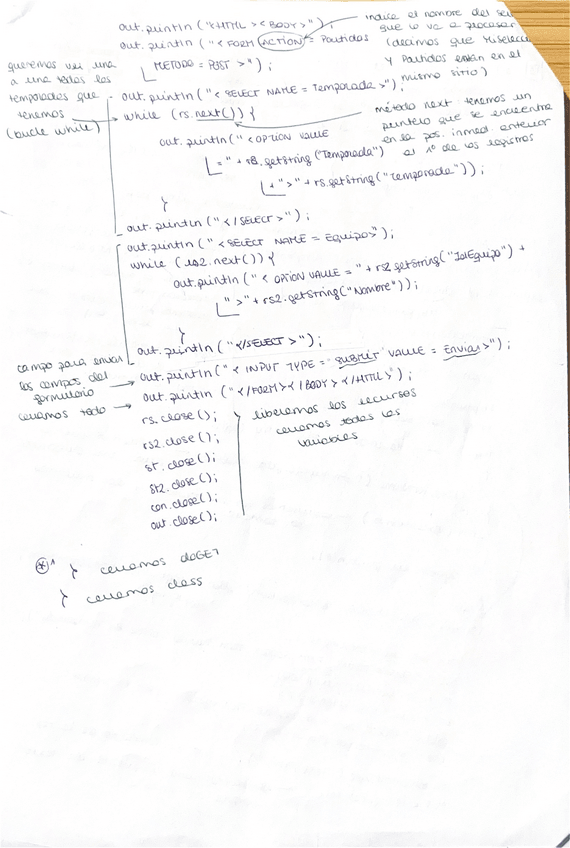 out.println ("<HTML><BODY>");
indica el nombre del
que lo va a procesar
out.println ("<FORM ACTION = Partidos
(decimos que Miselecc
METODO = POST >");
y Partidos están en el
mismo sitio)
queremos ver una
a una todas las
temporadas que
tenemos
(bucle while)
out.println ("<SELECT NAME = Temporada>");
while (rs.next()) {
método next tenemos un
puntero que se encuentra
en la pos. inmed. anterior
al 1º de los registros
out.println ("<OPTION VALUE
= " + rs.getString ("Temporada")
+ ">" + rs.getString ("temporada"));
}
out.println ("</SELECT>");
out.println ("<SELECT NAME = Equipo>");
while (rs2.next()) {
out.println ("< OPTION VALUE = " + rs2.getString("IdEquipo") +
">" + rs2.getString("Nombre"));
}
out.println ("</SELECT>");
campo para enviar
los campos del
formulario
out.println ("< INPUT TYPE = SUBMIT VALUE = Enviar>");
cerramos todo
out.println ("</FORM></BODY></HTML>");
rs.close();
rs2.close();
st.close();
st2.close();
con.close();
out.close();
liberamos los recursos
cerramos todas las
variables
*1 } cerramos doGET
} cerramos class